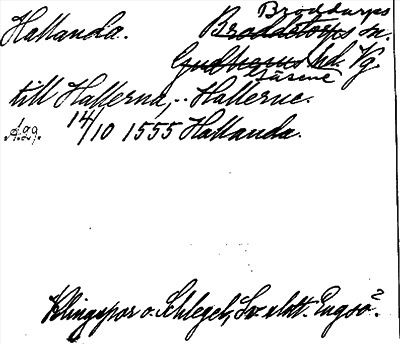 Hallanda. Broddarps
Broddetorps sn.
Gudhems hd. Vg
Gäsene
till Hallerna, .. Hallerne.
14/10 1555 Hallanda.
Klingspor o. Schlegel, Sv. slott. Engsö 2.